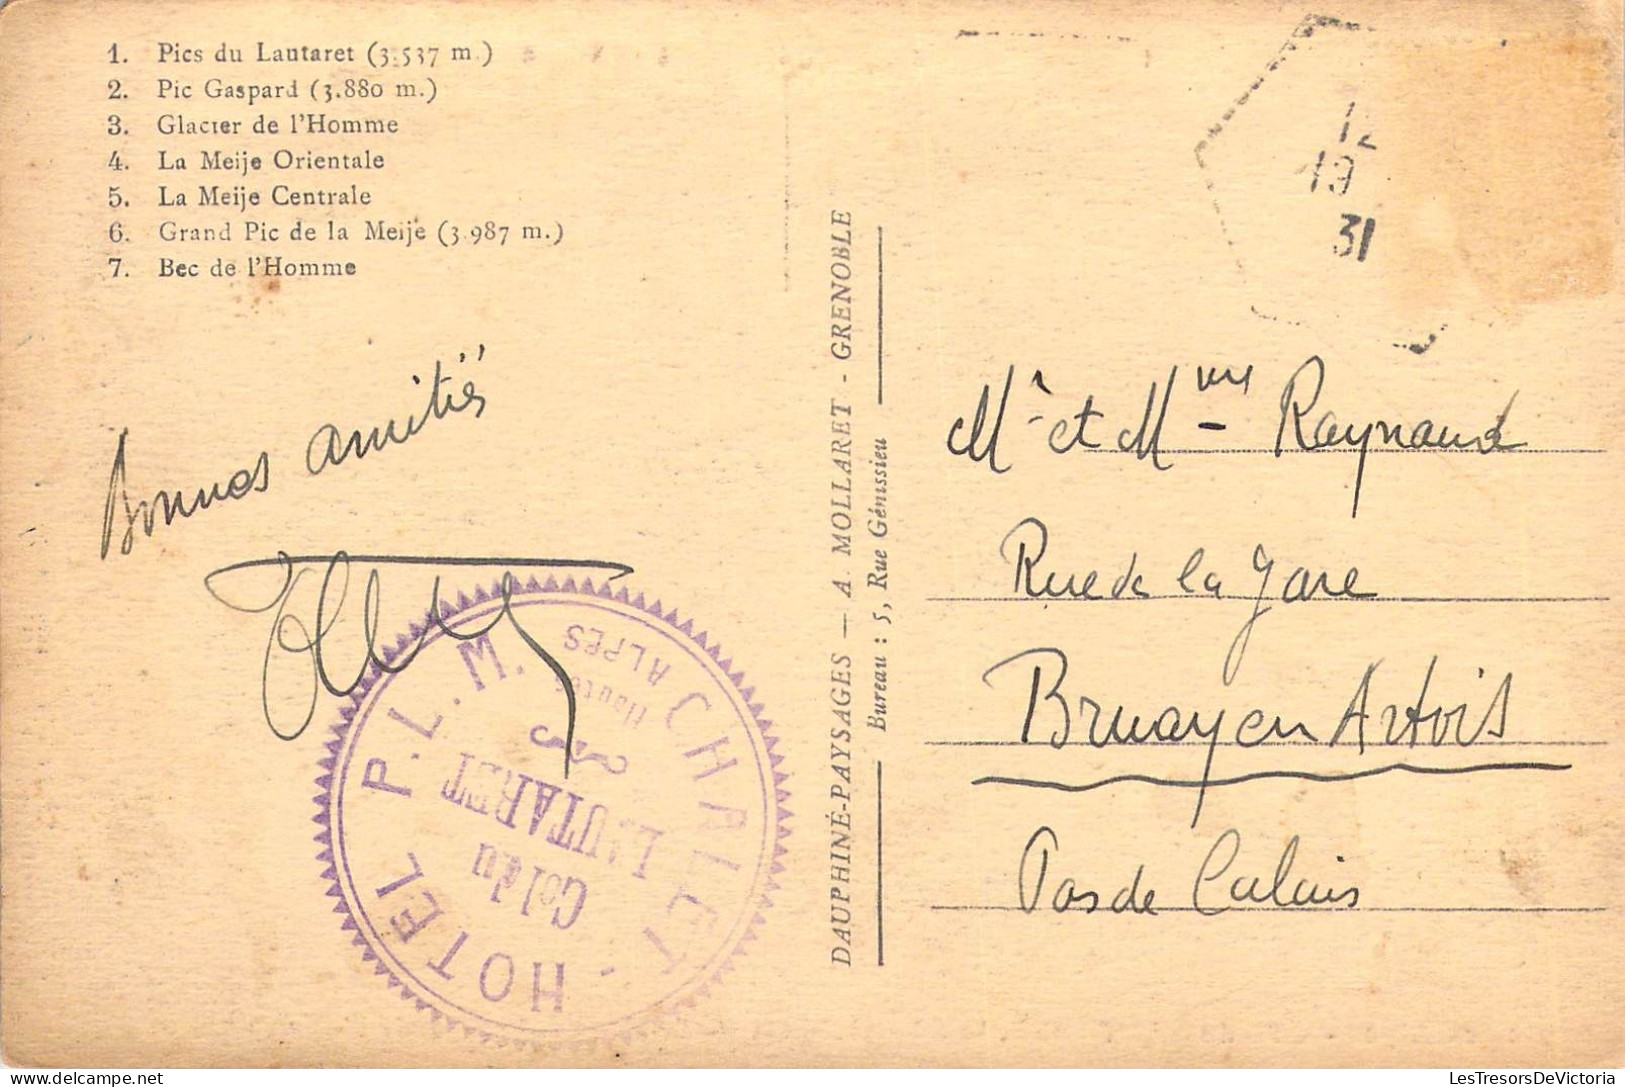 1. Pics du Lautaret (3.537 m.)
2. Pic Gaspard (3.880 m.)
3. Glacier de l'Homme
4. La Meije Orientale
5. La Meije Centrale
6. Grand Pic de la Meije (3.987 m.)
7. Bec de l'Homme
Bonnes amitiés
CHALET-HOTEL P.L.M.
Col du
LAUTARET
Hautes
ALPES
DAUPHINÉ-PAYSAGES — A. MOLLARET - GRENOBLE
Bureau : 5, Rue Génissieu
12
19
31
Mr et Mme Raynaud
Rue de la Gare
Bruay en Artois
Pas de Calais
LesTresorsDeVictoria